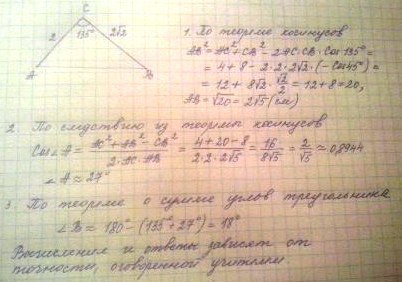 C
2
135°
2√2
A
B
1. По теореме косинусов
AB² = AC² + CB² - 2AC·CB·Cos135° =
= 4 + 8 - 2·2·2√2·(-Cos45°) =
= 12 + 8√2 · √2/2 = 12 + 8 = 20,
AB = √20 = 2√5 (см)
2. По следствию из теоремы косинусов
Cos∠A = (AC² + AB² - CB²)/(2·AC·AB) = (4+20-8)/(2·2·2√5) = 16/(8√5) = 2/√5 ≈ 0,8944
∠A ≈ 27°
3. По теореме о сумме углов треугольника
∠B ≈ 180° - (135° + 27°) = 18°
Вычисления и ответы зависят от
точности, оговоренной учителем